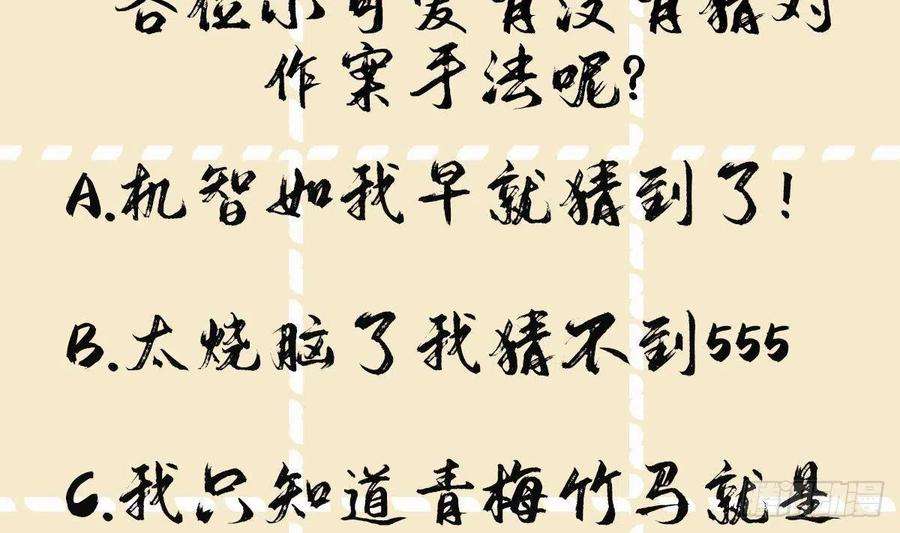 各位小可爱有没有猜对
作案手法呢?
A.机智如我早就猜到了!
B.太烧脑了我猜不到555
C.我只知道青梅竹马就是
腾讯动漫